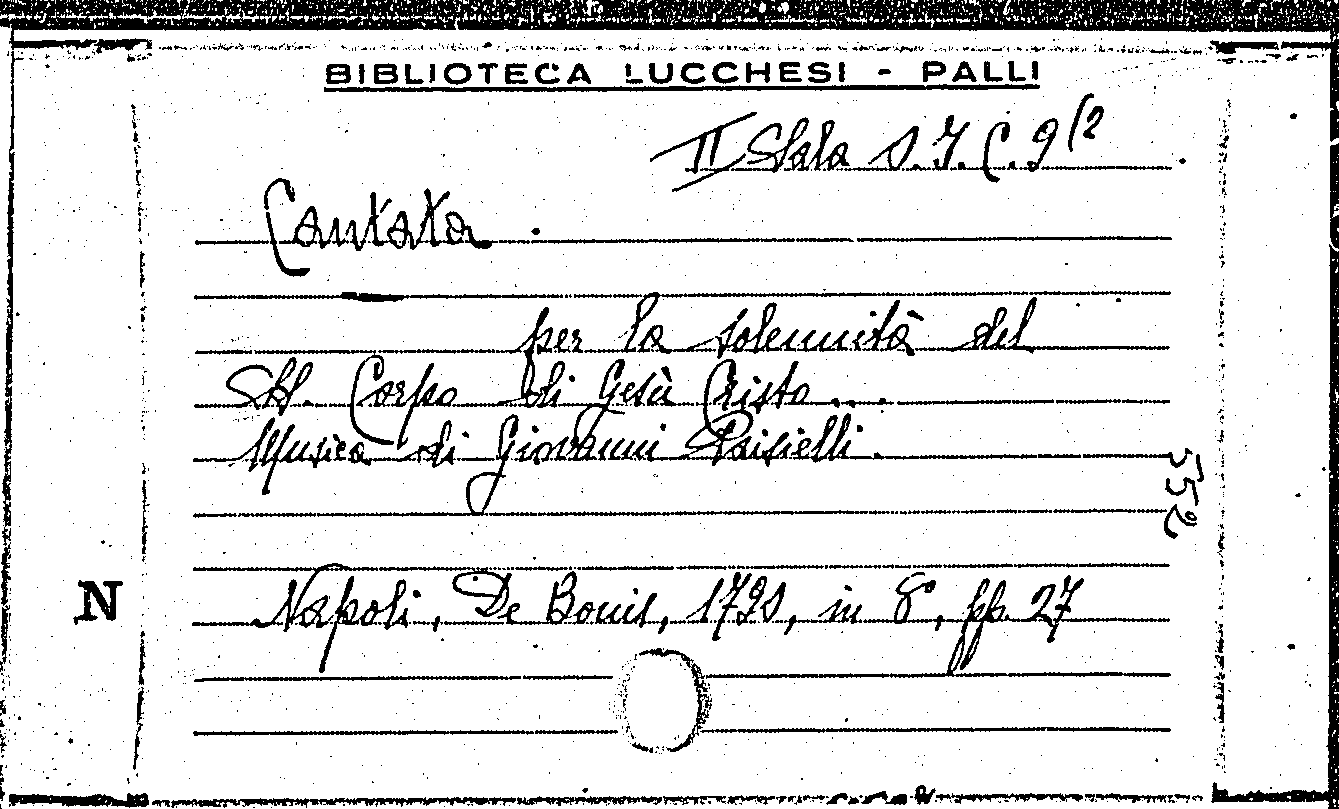 BIBLIOTECA LUCCHESI - PALLI
II Sala S. I. C. 9/2
Cantata.
per la solennità del
SS. Corpo di Gesù Cristo...
Musica di Giovanni Paisielli.
552
N
Napoli, De Bonis, 1790, in 8°, pp. 27